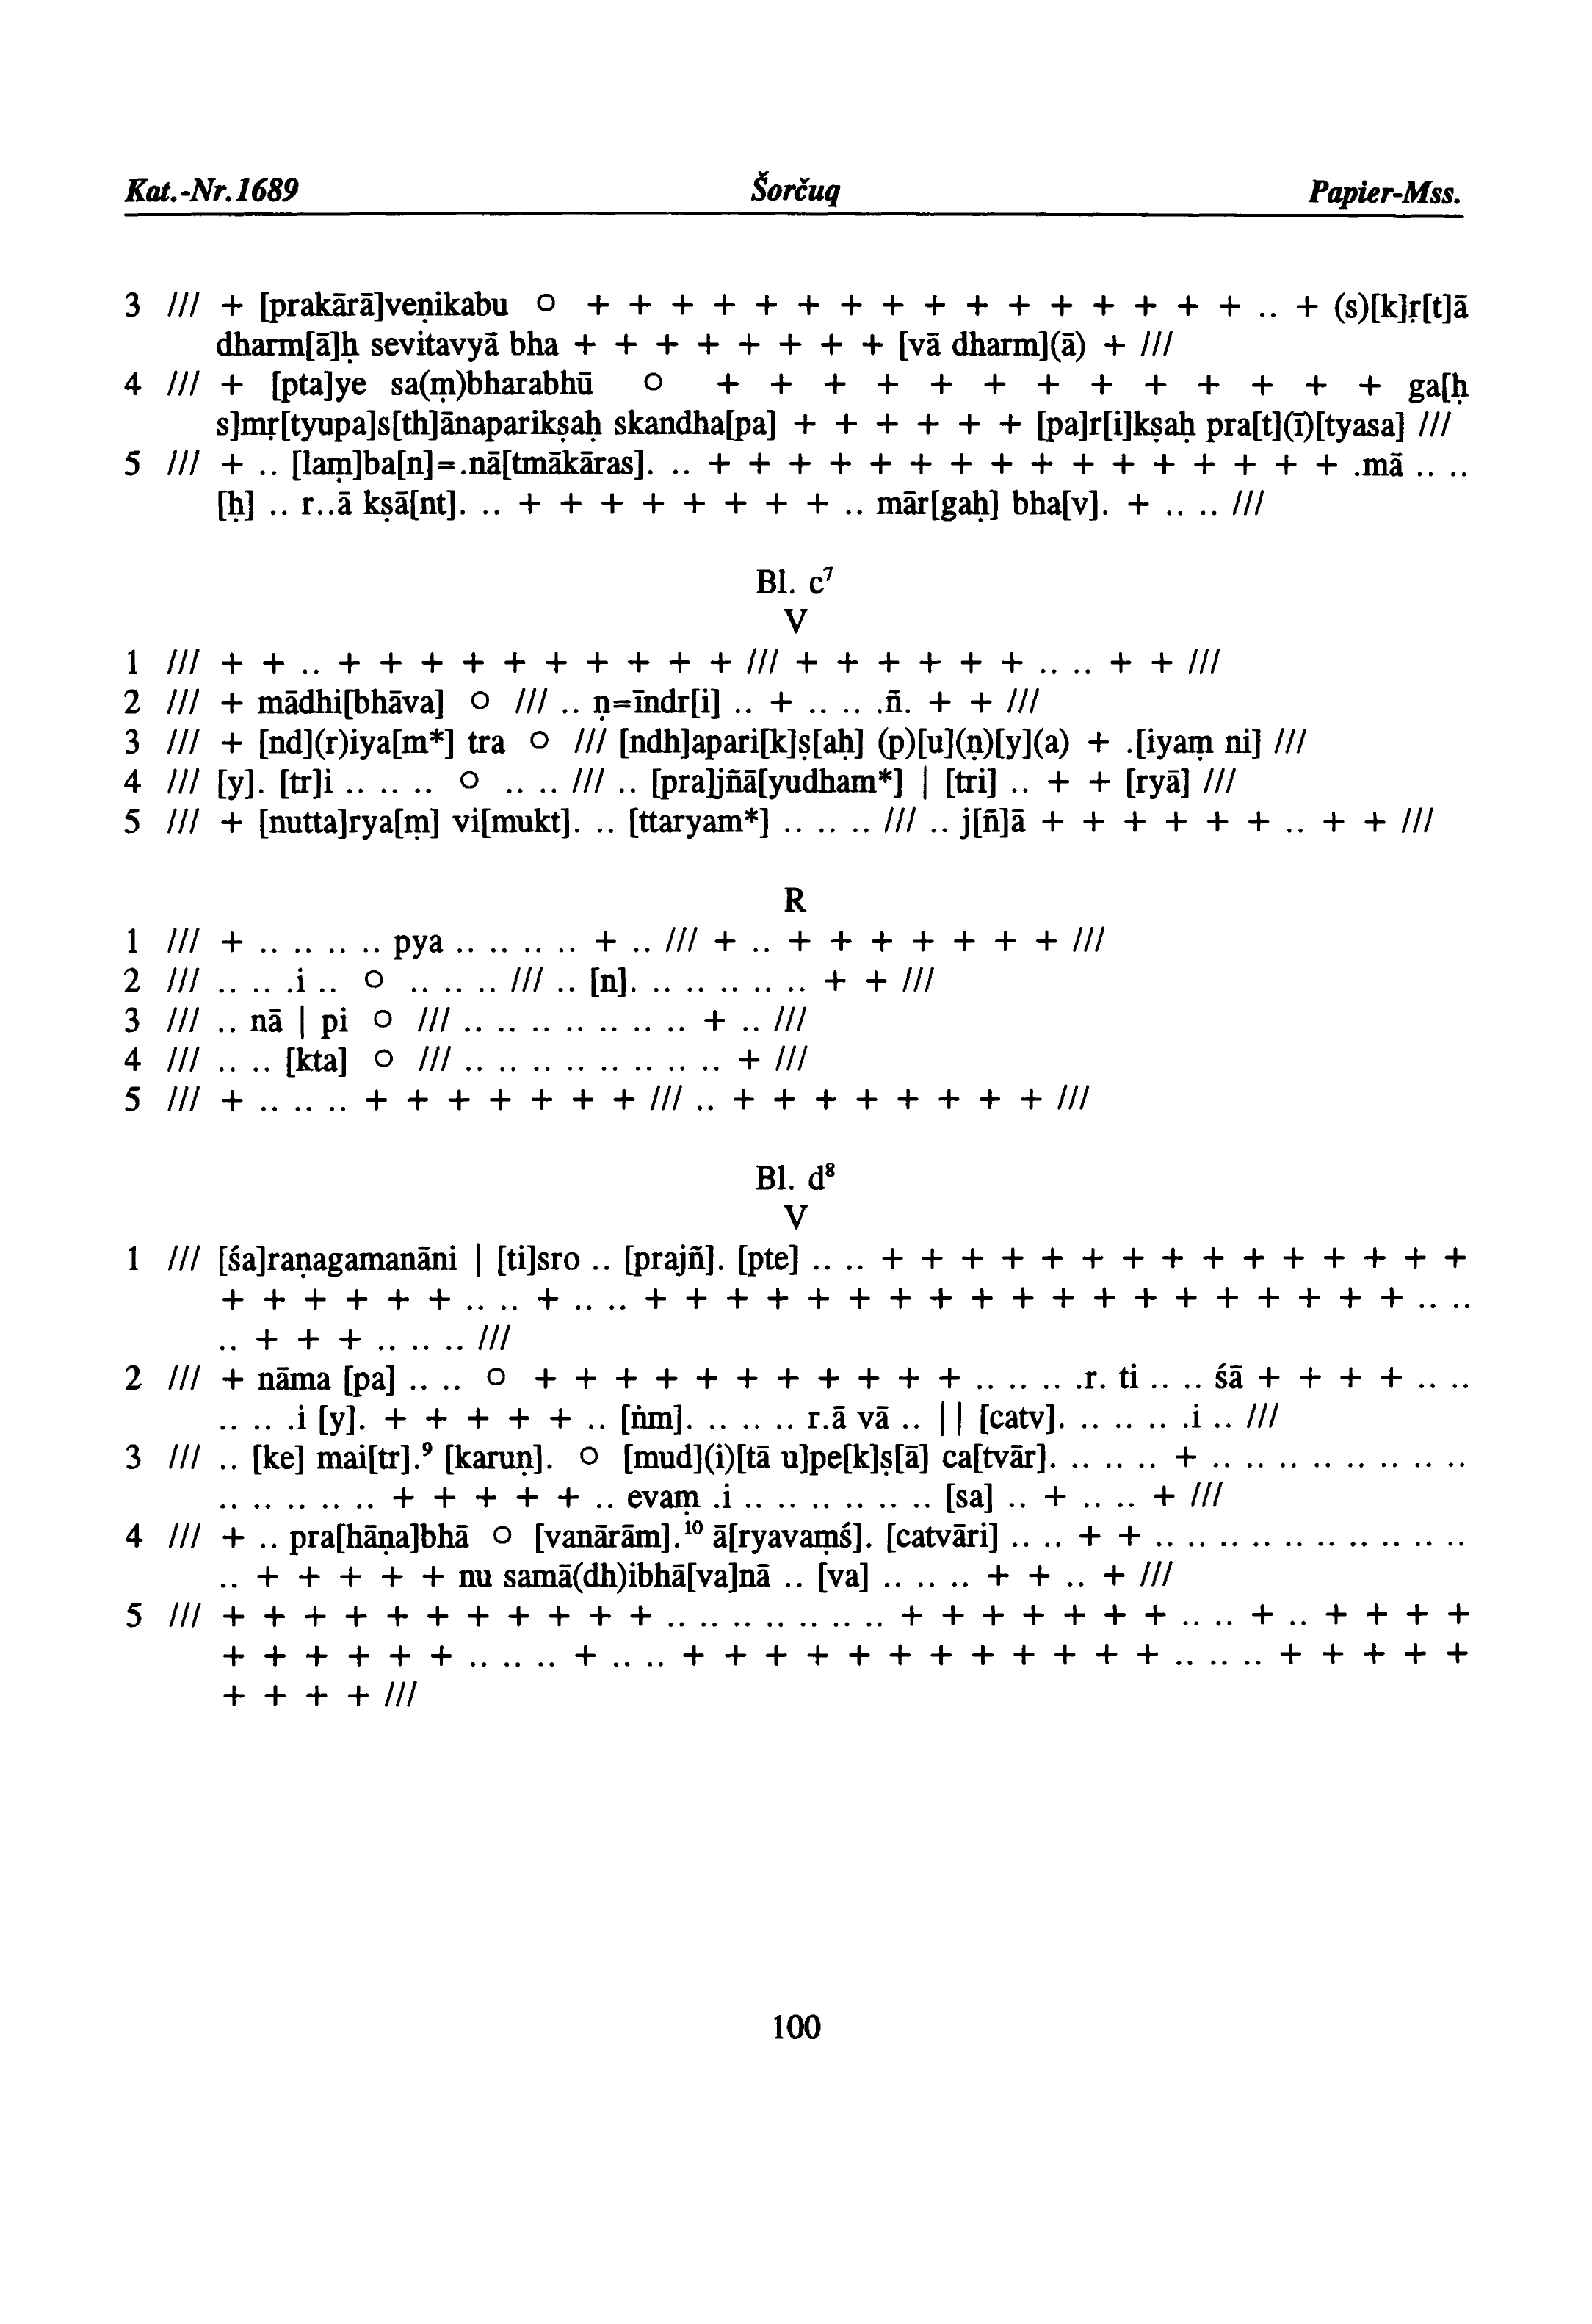 Kat.-Nr.1689 Šorčuq Papier-Mss.
3 /// + [prakārā]veṇikabu ○ + + + + + + + + + + + + + + + + .. + (s)[k]ṛ[t]ā
dharm[ā]ḥ sevitavyā bha + + + + + + + + [vā dharm](ā) + ///
4 /// + [pta]ye sa(ṃ)bharabhū ○ + + + + + + + + + + + + + ga[ḥ
s]mṛ[tyupa]s[th]ānaparikṣaḥ skandha[pa] + + + + + + [pa]r[i]kṣaḥ pra[t](ī)[tyasa] ///
5 /// + .. [laṃ]ba[n]=.nā[tmākāras]. .. + + + + + + + + + + + + + + + + .mā .. ..
[ḥ] .. r..ā kṣā[nt]. .. + + + + + + + + .. mār[gaḥ] bha[v]. + .. .. ///
Bl. c⁷
V
1 /// + + .. + + + + + + + + + + /// + + + + + + .. .. + + ///
2 /// + mādhi[bhāva] ○ /// .. ṇ=īndr[i] .. + .. .. .ñ. + + ///
3 /// + [nd](r)iya[m*] tra ○ /// [ndh]apari[k]ṣ[aḥ] (p)[u](ṇ)[y](a) + .[iyaṃ ni] ///
4 /// [y]. [tr]i .. .. .. ○ .. .. /// .. [pra]jñā[yudham*] | [tri] .. + + [ryā] ///
5 /// + [nutta]rya[ṃ] vi[mukt]. .. [ttaryam*] .. .. .. /// .. j[ñ]ā + + + + + + .. + + ///
R
1 /// + .. .. .. .. pya .. .. .. .. + .. /// + .. + + + + + + + ///
2 /// .. .. .i .. ○ .. .. .. /// .. [n]. .. .. .. .. .. + + ///
3 /// .. nā | pi ○ /// .. .. .. .. .. .. .. + .. ///
4 /// .. .. [kta] ○ /// .. .. .. .. .. .. .. .. + ///
5 /// + .. .. .. + + + + + + + /// .. + + + + + + + + ///
Bl. d⁸
V
1 /// [śa]raṇagamanāni | [ti]sro .. [prajñ]. [pte] .. .. + + + + + + + + + + + + + + +
+ + + + + + .. .. + .. .. + + + + + + + + + + + + + + + + + + + .. ..
.. + + + .. .. .. ///
2 /// + nāma [pa] .. .. ○ + + + + + + + + + + + .. .. .. .r. ti .. .. śā + + + + .. ..
.. .. .i [y]. + + + + + .. [ṅm]. .. .. .. r.ā vā .. || [catv]. .. .. .. .i .. ///
3 /// .. [ke] mai[tr].⁹ [karuṇ]. ○ [mud](i)[tā u]pe[k]ṣ[ā] ca[tvār]. .. .. .. + .. .. .. .. .. .. .. ..
.. .. .. .. .. + + + + + .. evaṃ .i .. .. .. .. .. .. [sa] .. + .. .. + ///
4 /// + .. pra[hāṇa]bhā ○ [vanārām].¹⁰ ā[ryavaṃś]. [catvāri] .. .. + + .. .. .. .. .. .. .. .. .. ..
.. + + + + + nu samā(dh)ibhā[va]nā .. [va] .. .. .. + + .. + ///
5 /// + + + + + + + + + + + .. .. .. .. .. .. .. + + + + + + + .. .. + .. + + + +
+ + + + + + .. .. .. + .. .. + + + + + + + + + + + + .. .. .. + + + + +
+ + + + ///
100